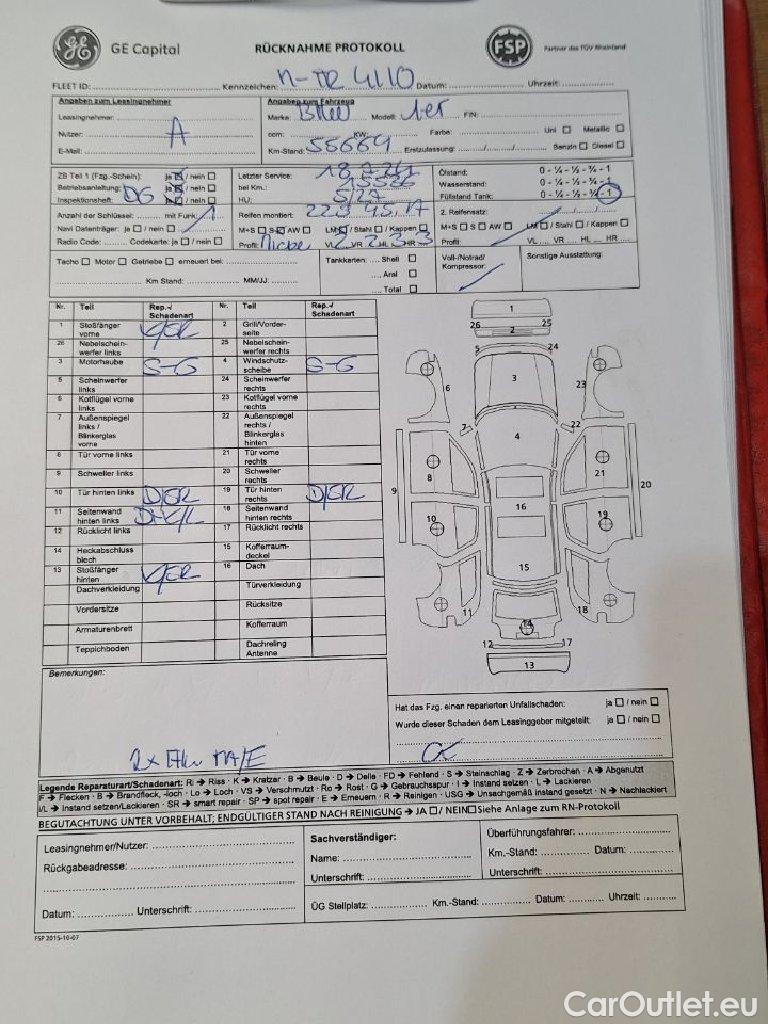 GE Capital
RÜCKNAHME PROTOKOLL
FSP
Partner des TÜV Rheinland
FLEET ID: Kennzeichen: Datum: Uhrzeit:
Angaben zum Leasingnehmer
Angaben zum Fahrzeug
Leasingnehmer:
Marke: BMW Modell: 1er FIN:
Nutzer: A
ccm: KW: Farbe: Uni ☐ Metallic ☐
E-Mail:
Km-Stand: 55664 Erstzulassung: Benzin ☐ Diesel ☐
ZB Teil 1 (Fzg.-Schein): ja / nein
Letzter Service:
Ölstand: 0 - ¼ - ½ - ¾ - 1
Betriebsanleitung: ja / nein
bei Km.:
Wasserstand: 0 - ¼ - ½ - ¾ - 1
Inspektionsheft: DG ja / nein
HU: 5/25
Füllstand Tank: 0 - ¼ - ½ - ¾ - 1
Anzahl der Schlüssel: mit Funk: 1
Reifen montiert: 225 45 17
2. Reifensatz:
Navi Datenträger: ja / nein
M+S S AW LM / Stahl / Kappen
M+S S AW LM / Stahl / Kappen
Radio Code: Codekarte: ja / nein
Profil: VL HL HR 3
Profil: VL VR HL HR
Tacho Motor Getriebe erneuert bei:
Km Stand: MM/JJ:
Tankkarten: Shell
Aral
Total
Voll-/Notrad/
Kompressor:
Sonstige Ausstattung:
Nr. Teil Rep.-/ Schadenart Nr. Teil Rep.-/ Schadenart
1 Stoßfänger vorne 2 Grill/Vorderseite
26 Nebelscheinwerfer links 25 Nebelscheinwerfer rechts
3 Motorhaube S-G 4 Windschutzscheibe S-G
5 Scheinwerfer links 24 Scheinwerfer rechts
6 Kotflügel vorne links 23 Kotflügel vorne rechts
7 Außenspiegel links / Blinkerglas vorne 22 Außenspiegel rechts / Blinkerglas hinten
8 Tür vorne links 21 Tür vorne rechts
9 Schweller links 20 Schweller rechts
10 Tür hinten links 19 Tür hinten rechts
11 Seitenwand hinten links 18 Seitenwand hinten rechts
12 Rücklicht links 17 Rücklicht rechts
14 Heckabschluss blech 15 Kofferraumdeckel
13 Stoßfänger hinten 16 Dach
Dachverkleidung Türverkleidung
Vordersitze Rücksitze
Armaturenbrett Kofferraum
Teppichboden Dachreling Antenne
1
26 2 25
5 24
3
6 23
7 22
4
8 21
9 20
16
10 19
15
11 18
14
12 17
13
Bemerkungen:
Hat das Fzg. einen reparierten Unfallschaden: ja ☐ / nein ☐
Wurde dieser Schaden dem Leasinggeber mitgeteilt: ja ☐ / nein ☐
Legende Reparaturart/Schadenart: Ri → Riss · K → Kratzer · B → Beule · D → Delle · FD → Fehlend · S → Steinschlag · Z → Zerbrochen · A → Abgenutzt
F → Flecken · B → Brandfleck, -loch · Lo → Loch · VS → Verschmutzt · Ro → Rost · G → Gebrauchsspur · I → Instand setzen · L → Lackieren
I/L → Instand setzen/Lackieren · SR → smart repair · SP → spot repair · E → Erneuern · R → Reinigen · USG → Unsachgemäß instand gesetzt · N → Nachlackiert
BEGUTACHTUNG UNTER VORBEHALT; ENDGÜLTIGER STAND NACH REINIGUNG → JA ☐ / NEIN ☐ Siehe Anlage zum RN-Protokoll
Leasingnehmer/Nutzer:
Rückgabeadresse:
Datum: Unterschrift:
Sachverständiger:
Name:
Unterschrift:
Überführungsfahrer:
Km.-Stand: Datum:
Unterschrift:
ÜG Stellplatz: Km.-Stand: Datum: Uhrzeit:
FSP 2015-10-07
CarOutlet.eu